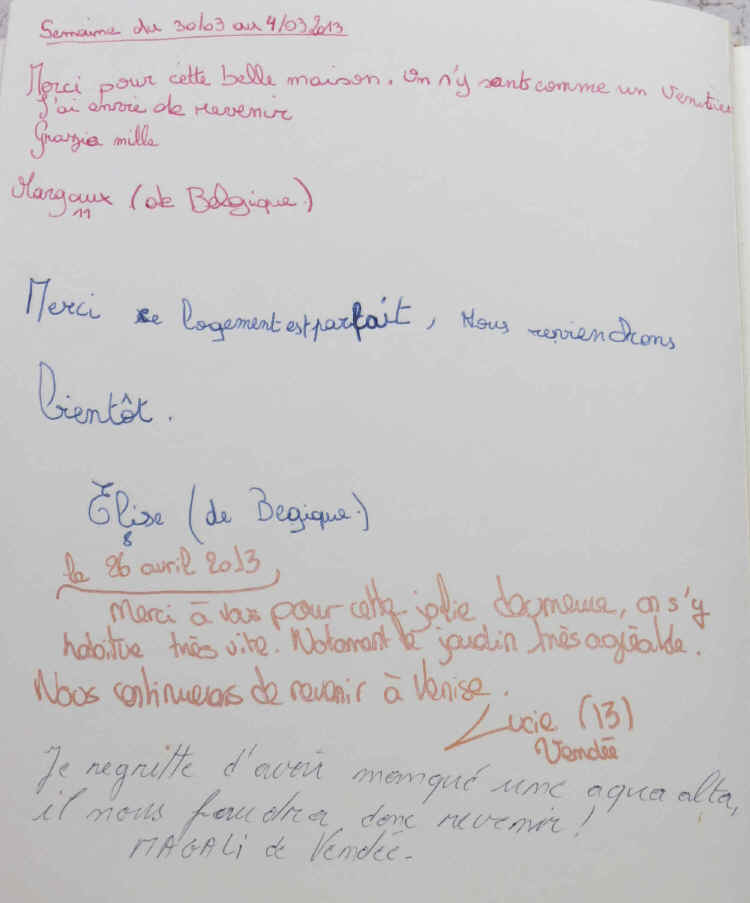 Semaine du 30/03 au 4/03 2013
Merci pour cette belle maison. On n'y sent comme un Venitien
J'ai envie de revenir
Grazie mille
Margaux (de Belgique)
11
Merci ce logement est parfait, Nous reviendrons
bientôt.
Elise (de Begique.)
8
le 26 avril 2013,
Merci à vous pour cette jolie daymeure, on s'y
habitue très vite. Notament le jardin très agréable.
Nous continuerons de revenir à Venise.
Lucie (13)
Vendée
Je regritte d'avoir manqué une aqua alta,
il nous faudra donc revenir!
MAGALi de Vendée.